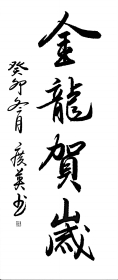 金龍賀歲
癸卯冬月 癸英书